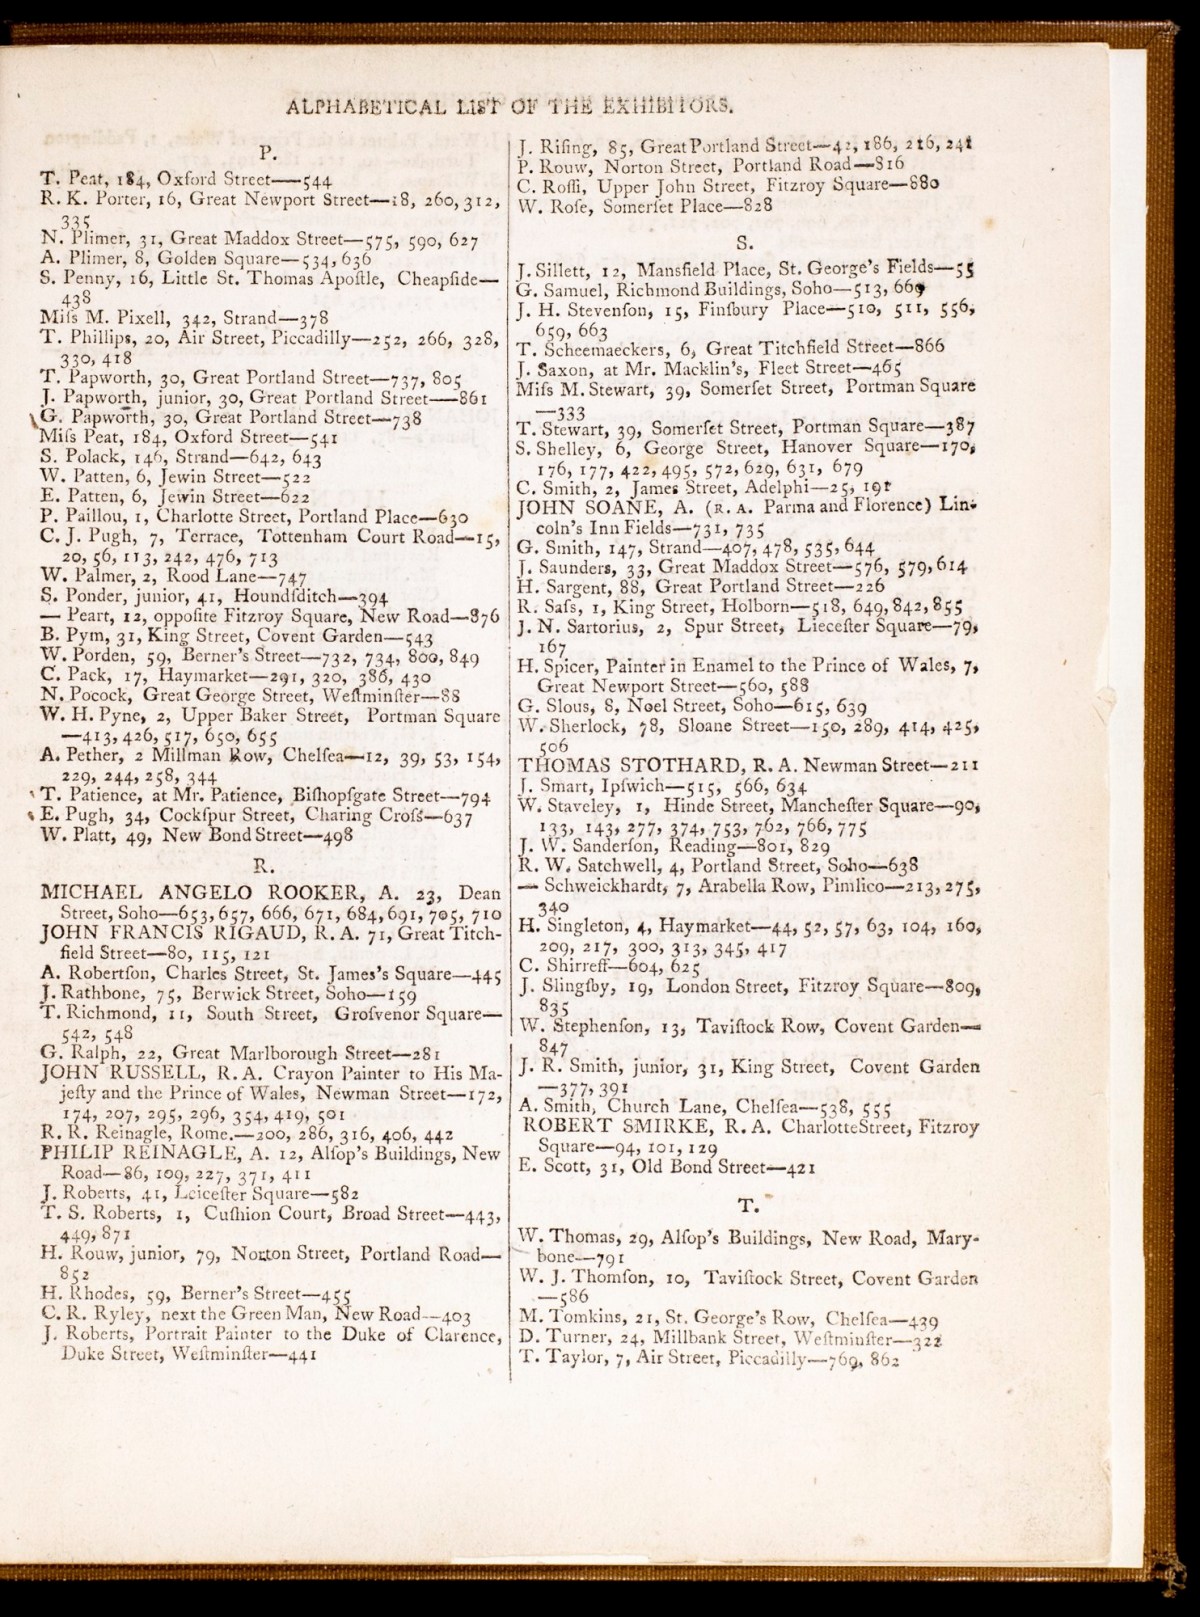 ALPHABETICAL LIST OF THE EXHIBITORS.
P.
T. Peat, 184, Oxford Street—544
R. K. Porter, 16, Great Newport Street—18, 260, 312,
335
N. Plimer, 31, Great Maddox Street—575, 590, 627
A. Plimer, 8, Golden Square—534, 636
S. Penny, 16, Little St. Thomas Apoſtle, Cheapſide—
438
Miſs M. Pixell, 342, Strand—378
T. Phillips, 20, Air Street, Piccadilly—252, 266, 328,
330, 418
T. Papworth, 30, Great Portland Street—737, 805
J. Papworth, junior, 30, Great Portland Street—861
G. Papworth, 30, Great Portland Street—738
Miſs Peat, 184, Oxford Street—541
S. Polack, 146, Strand—642, 643
W. Patten, 6, Jewin Street—522
E. Patten, 6, Jewin Street—622
P. Paillou, 1, Charlotte Street, Portland Place—630
C. J. Pugh, 7, Terrace, Tottenham Court Road—15,
20, 56, 113, 242, 476, 713
W. Palmer, 2, Rood Lane—747
S. Ponder, junior, 41, Houndſditch—394
— Peart, 12, oppoſite Fitzroy Square, New Road—876
B. Pym, 31, King Street, Covent Garden—543
W. Porden, 59, Berner's Street—732, 734, 800, 849
C. Pack, 17, Haymarket—291, 320, 386, 430
N. Pocock, Great George Street, Weſtminſter—88
W. H. Pyne, 2, Upper Baker Street, Portman Square
—413, 426, 517, 650, 655
A. Pether, 2 Millman Row, Chelſea—12, 39, 53, 154,
229, 244, 258, 344
T. Patience, at Mr. Patience, Biſhopſgate Street—794
E. Pugh, 34, Cockſpur Street, Charing Croſs—637
W. Platt, 49, New Bond Street—498
R.
MICHAEL ANGELO ROOKER, A. 23, Dean
Street, Soho—653, 657, 666, 671, 684, 691, 705, 710
JOHN FRANCIS RIGAUD, R. A. 71, Great Titch-
field Street—80, 115, 121
A. Robertſon, Charles Street, St. James's Square—445
J. Rathbone, 75, Berwick Street, Soho—159
T. Richmond, 11, South Street, Groſvenor Square—
542, 548
G. Ralph, 22, Great Marlborough Street—281
JOHN RUSSELL, R. A. Crayon Painter to His Ma-
jeſty and the Prince of Wales, Newman Street—172,
174, 207, 295, 296, 354, 419, 501
R. R. Reinagle, Rome.—200, 286, 316, 406, 442
PHILIP REINAGLE, A. 12, Alſop's Buildings, New
Road—86, 109, 227, 371, 411
J. Roberts, 41, Leiceſter Square—582
T. S. Roberts, 1, Cuſhion Court, Broad Street—443,
449, 871
H. Rouw, junior, 79, Norton Street, Portland Road—
852
H. Rhodes, 59, Berner's Street—455
C. R. Ryley, next the Green Man, New Road—403
J. Roberts, Portrait Painter to the Duke of Clarence,
Duke Street, Weſtminſter—441
J. Riſing, 85, Great Portland Street—42, 186, 216, 241
P. Rouw, Norton Street, Portland Road—816
C. Roſſi, Upper John Street, Fitzroy Square—880
W. Roſe, Somerſet Place—828
S.
J. Sillett, 12, Mansfield Place, St. George's Fields—55
G. Samuel, Richmond Buildings, Soho—513, 669
J. H. Stevenſon, 15, Finſbury Place—510, 511, 556,
659, 663
T. Scheemaeckers, 6, Great Titchfield Street—866
J. Saxon, at Mr. Macklin's, Fleet Street—465
Miſs M. Stewart, 39, Somerſet Street, Portman Square
—333
T. Stewart, 39, Somerſet Street, Portman Square—387
S. Shelley, 6, George Street, Hanover Square—170,
176, 177, 422, 495, 572, 629, 631, 679
C. Smith, 2, James Street, Adelphi—25, 191
JOHN SOANE, A. (R. A. Parma and Florence) Lin-
coln's Inn Fields—731, 735
G. Smith, 147, Strand—407, 478, 535, 644
J. Saunders, 33, Great Maddox Street—576, 579, 614
H. Sargent, 88, Great Portland Street—226
R. Saſs, 1, King Street, Holborn—518, 649, 842, 855
J. N. Sartorius, 2, Spur Street, Lieceſter Square—79,
167
H. Spicer, Painter in Enamel to the Prince of Wales, 7,
Great Newport Street—560, 588
G. Slous, 8, Noel Street, Soho—615, 639
W. Sherlock, 78, Sloane Street—150, 289, 414, 425,
506
THOMAS STOTHARD, R. A. Newman Street—211
J. Smart, Ipſwich—515, 566, 634
W. Staveley, 1, Hinde Street, Mancheſter Square—90,
133, 143, 277, 374, 753, 762, 766, 775
J. W. Sanderſon, Reading—801, 829
R. W. Satchwell, 4, Portland Street, Soho—638
— Schweickhardt, 7, Arabella Row, Pimlico—213, 275,
340
H. Singleton, 4, Haymarket—44, 52, 57, 63, 104, 160,
209, 217, 300, 313, 345, 417
C. Shirreff—604, 625
J. Slingſby, 19, London Street, Fitzroy Square—809,
835
W. Stephenſon, 13, Taviſtock Row, Covent Garden—
847
J. R. Smith, junior, 31, King Street, Covent Garden
—377, 391
A. Smith, Church Lane, Chelſea—538, 555
ROBERT SMIRKE, R. A. Charlotte Street, Fitzroy
Square—94, 101, 129
E. Scott, 31, Old Bond Street—421
T.
W. Thomas, 29, Alſop's Buildings, New Road, Mary-
bone—791
W. J. Thomſon, 10, Taviſtock Street, Covent Garden
—586
M. Tomkins, 21, St. George's Row, Chelſea—439
D. Turner, 24, Millbank Street, Weſtminſter—322
T. Taylor, 7, Air Street, Piccadilly—769, 862